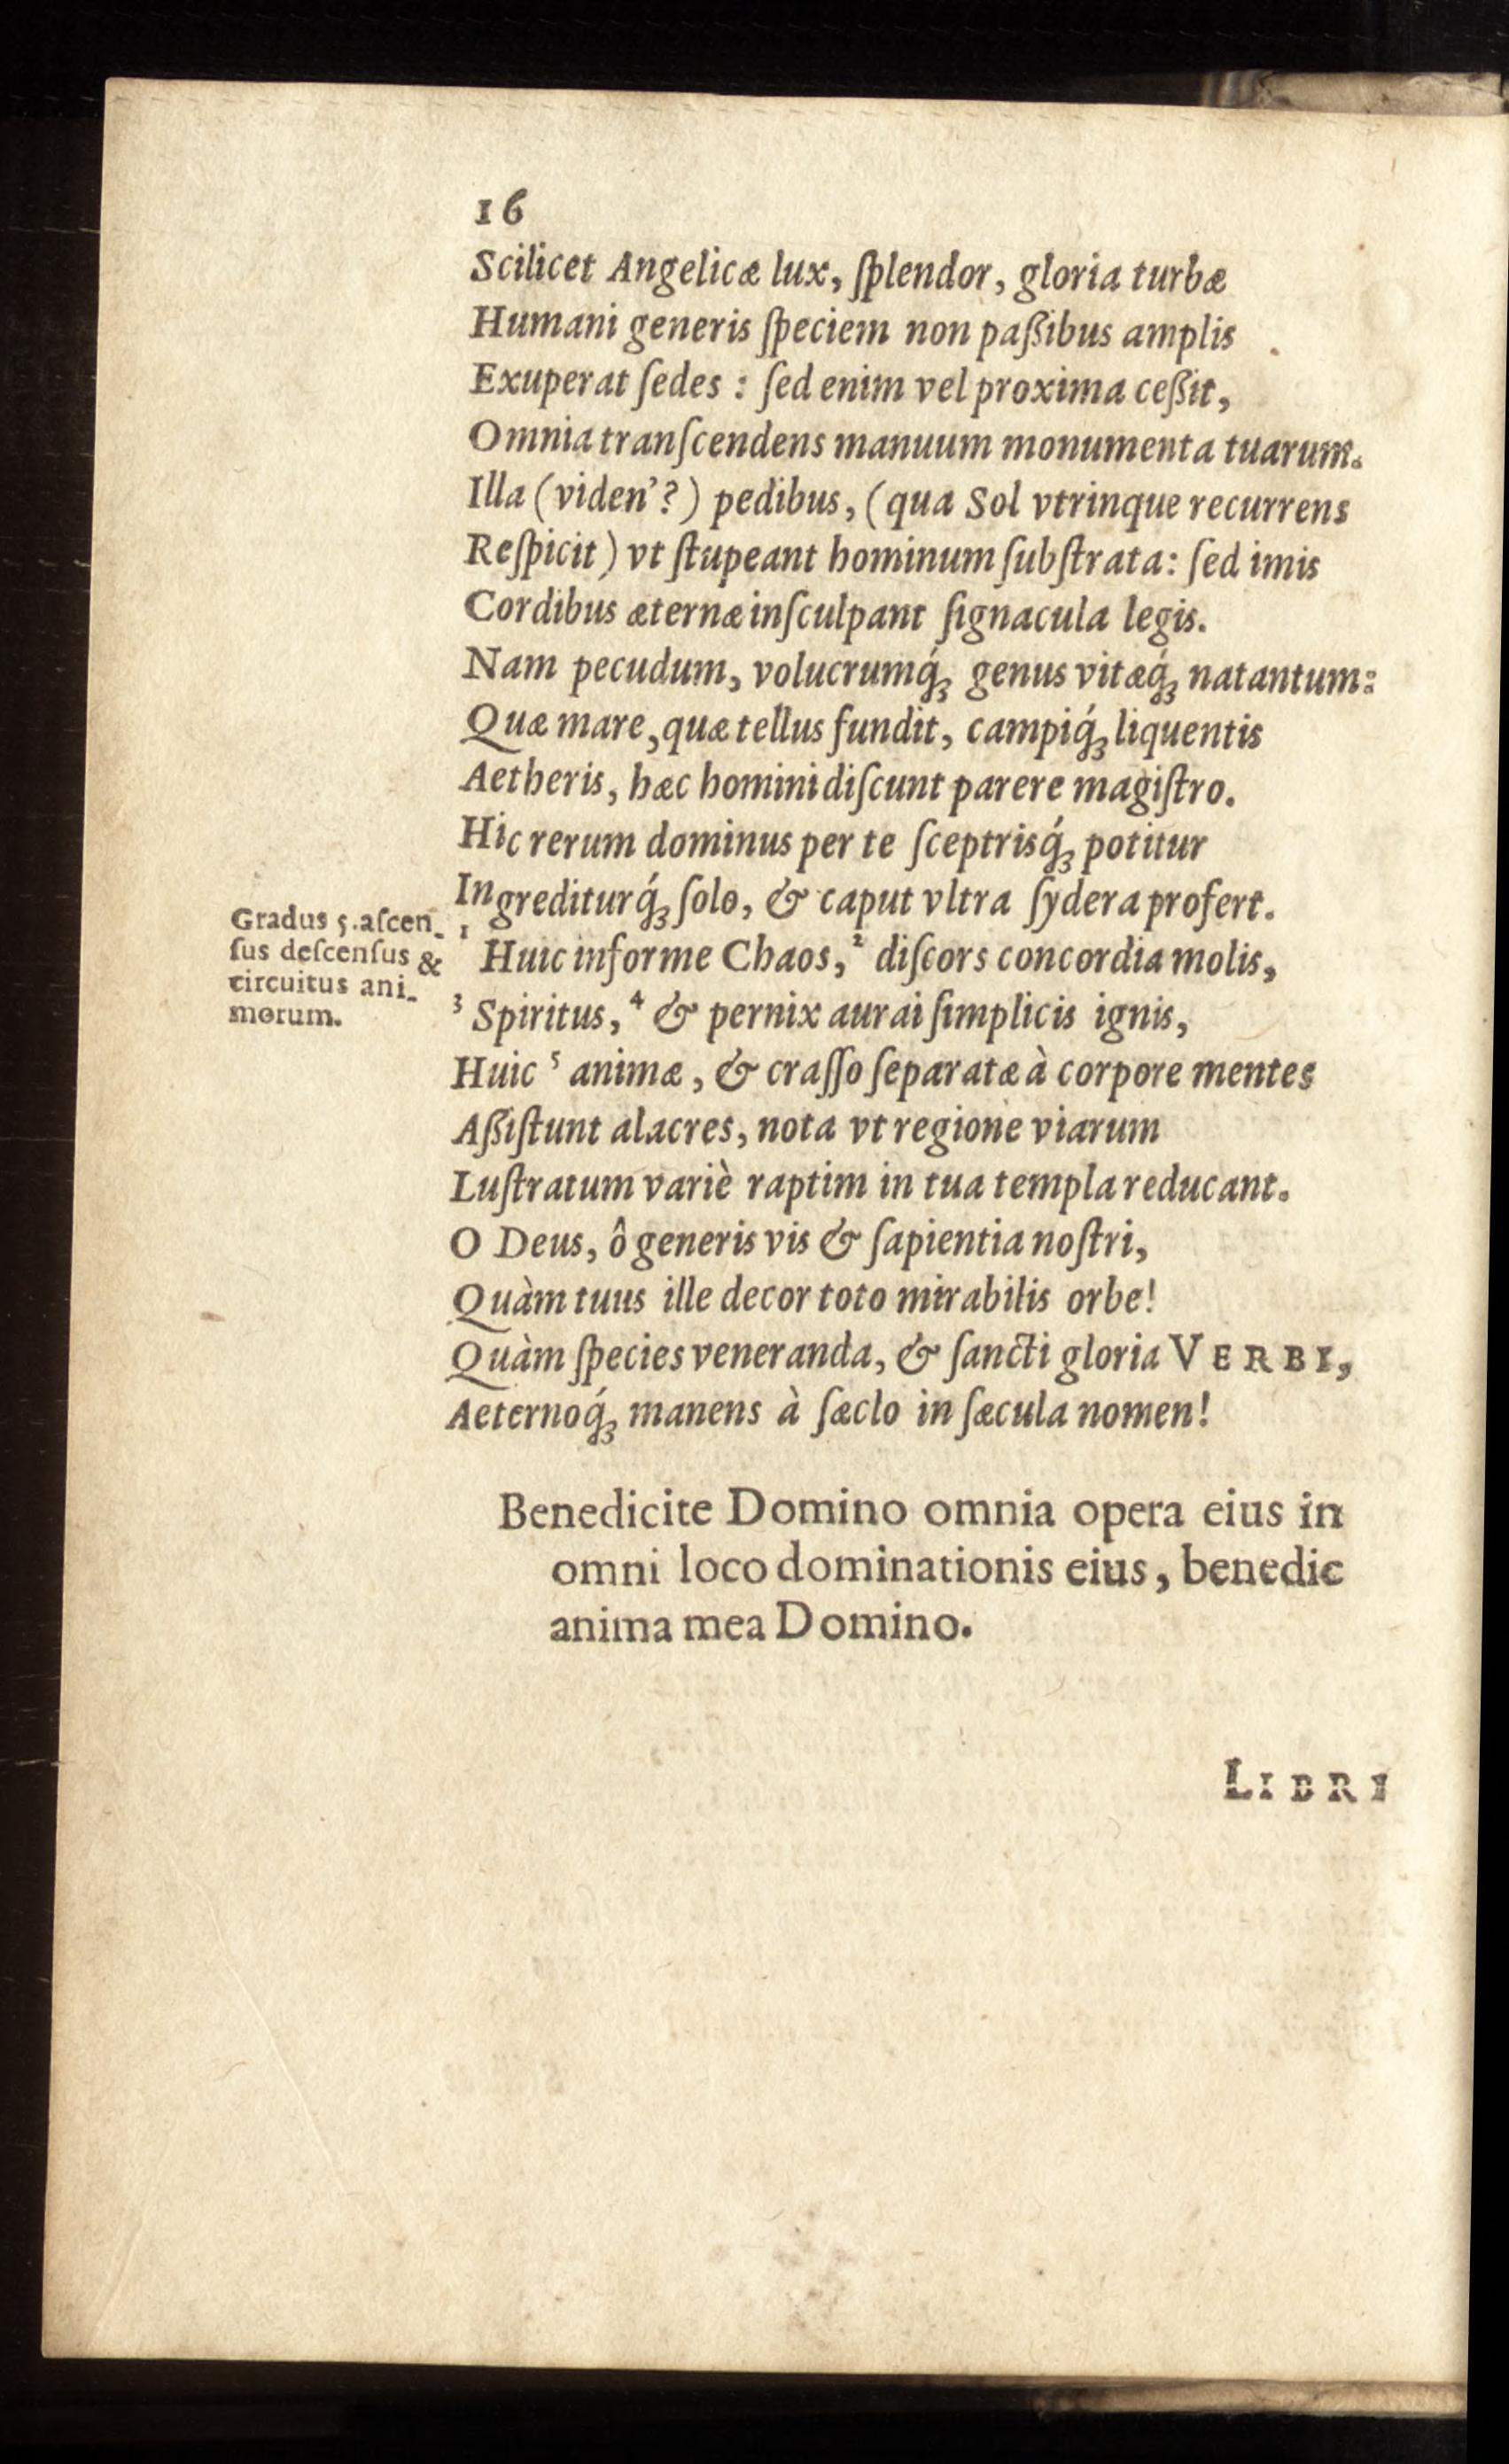 16
Scilicet Angelicæ lux, ſplendor, gloria turbæ
Humani generis ſpeciem non paßibus amplis
Exuperat ſedes : ſed enim vel proxima ceßit,
Omnia tranſcendens manuum monumenta tuarum.
Illa (viden'?) pedibus, (qua Sol vtrinque recurrens
Reſpicit) vt ſtupeant hominum ſubſtrata: ſed imis
Cordibus æternæ inſculpant ſignacula legis.
Nam pecudum, volucrumq́ꝫ genus vitæq́ꝫ natantum:
Quæ mare, quæ tellus fundit, campiq́ꝫ liquentis
Aetheris, hæc homini diſcunt parere magiſtro.
Hic rerum dominus per te ſceptrisq́ꝫ potitur
Ingrediturq́ꝫ ſolo, & caput vltra ſydera profert.
Gradus 5. aſcen-
ſus deſcenſus &
circuitus ani-
morum.
¹ Huic informe Chaos, ² diſcors concordia molis,
³ Spiritus, ⁴ & pernix aurai ſimplicis ignis,
Huic ⁵ animæ, & craſſo ſeparatæ à corpore mentes
Aßiſtunt alacres, nota vt regione viarum
Luſtratum variè raptim in tua templa reducant.
O Deus, ô generis vis & ſapientia noſtri,
Quàm tuus ille decor toto mirabilis orbe!
Quàm ſpecies veneranda, & ſancti gloria VERBI,
Aeternoq́ꝫ manens à ſæclo in ſæcula nomen!
Benedicite Domino omnia opera eius in
omni loco dominationis eius, benedic
anima mea Domino.
LIBRI